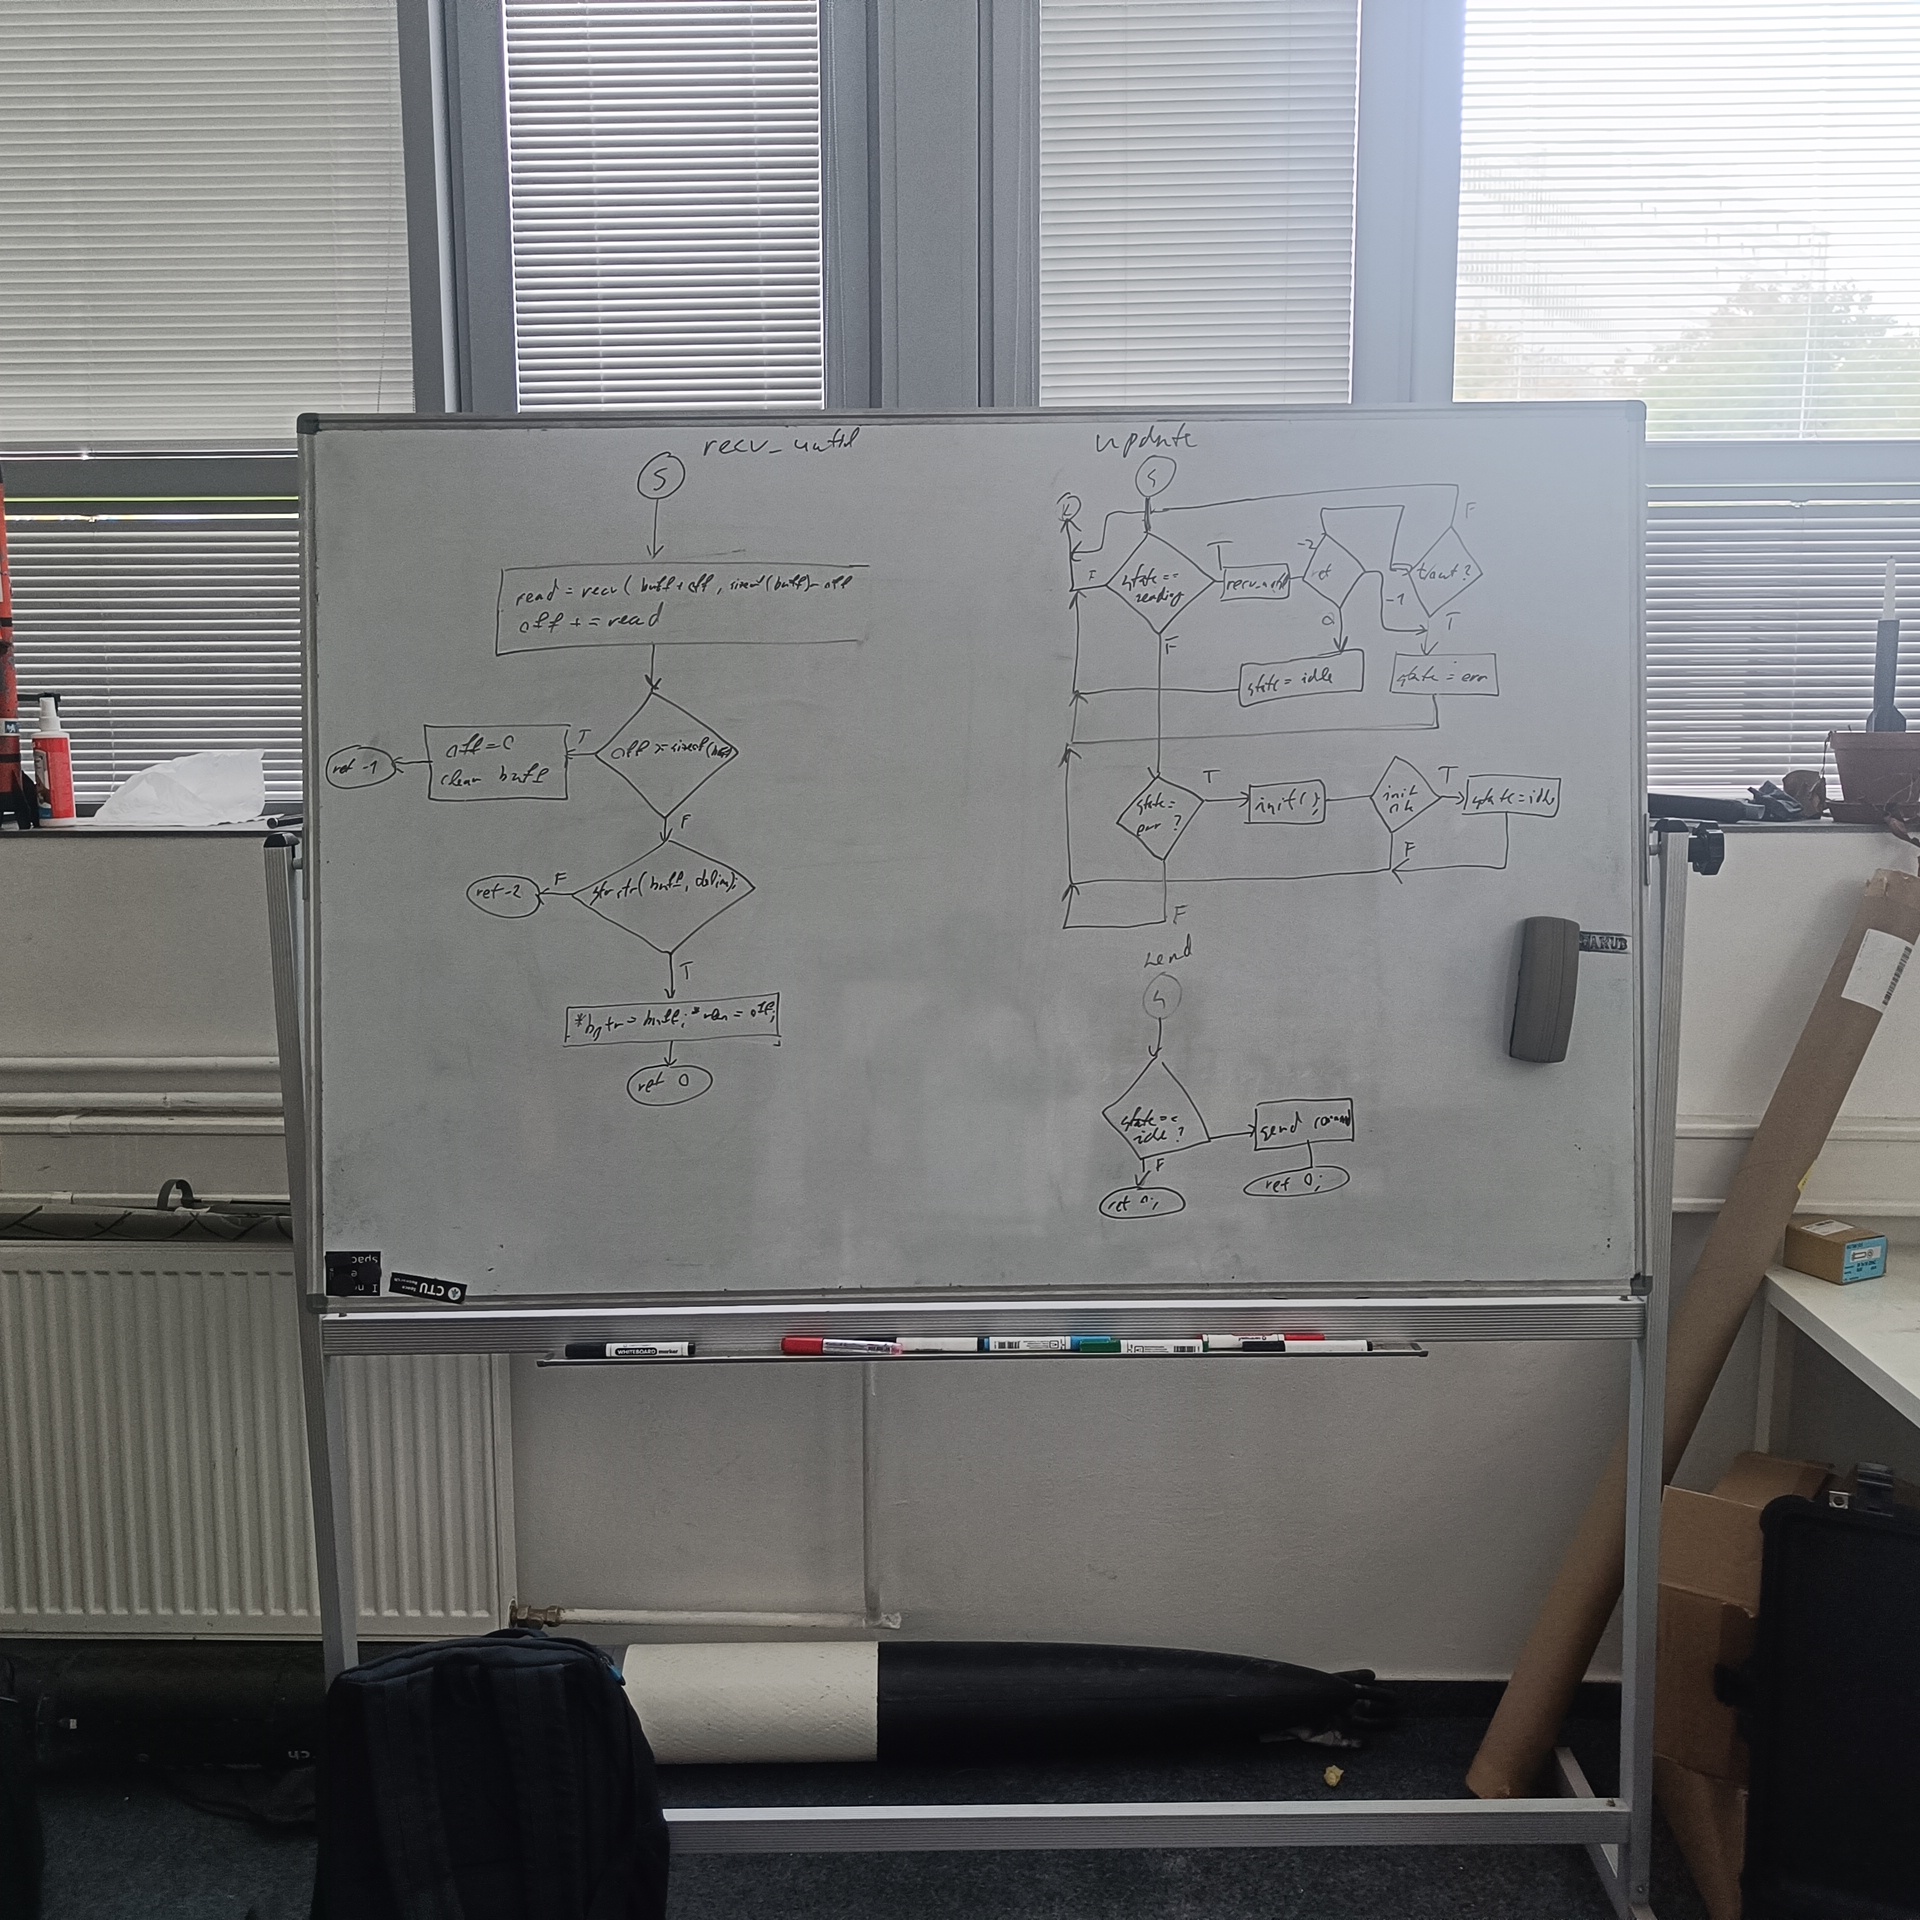 recv_until
S
read = recv( buff + off, sizeof(buff) - off
off += read
off >= sizeof(buff)
T
off = 0
clear buff
ret -1
F
strstr(buff, delim);
F
ret -2
T
*bptr = buff; *len = off;
ret 0
update
S
F
state ==
reading
T
recv_until
ret
-2
-1
0
t/out ?
F
T
state = idle
state = err
F
state =
err ?
T
init();
init
T
state = idle
F
F
send
S
state ==
idle ?
F
ret 0;
send
ret 0;
JAKUB
CTU
Space
Research
WHITEBOARD marker